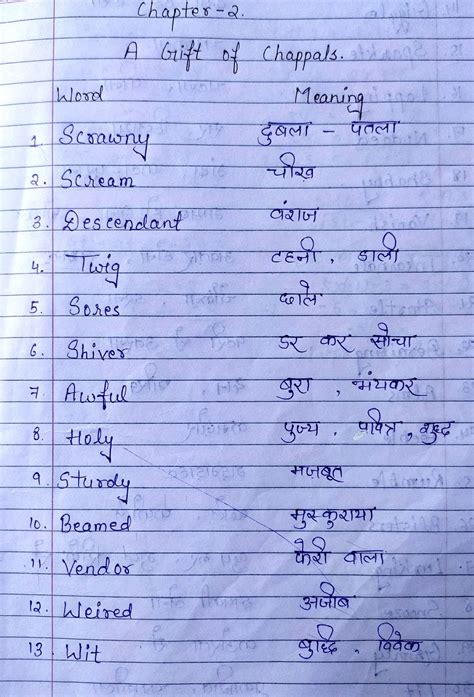 Chapter-2.
A Gift of Chappals.
Word Meaning
1. Scrawny दुबला - पतला
2. Scream चीख
3. Descendant वंशज
4. Twig टहनी, डाली
5. Sores छाले
6. Shiver डर कर सोचा
7. Awful बुरा, भंयकर
8. Holy पुज्य, पवित्र, शुद्ध
9. Sturdy मजबूत
10. Beamed मुस्कुराया
11. Vendor फेरी वाला
12. Weired अजीब
13. Wit बुद्धि, विवेक